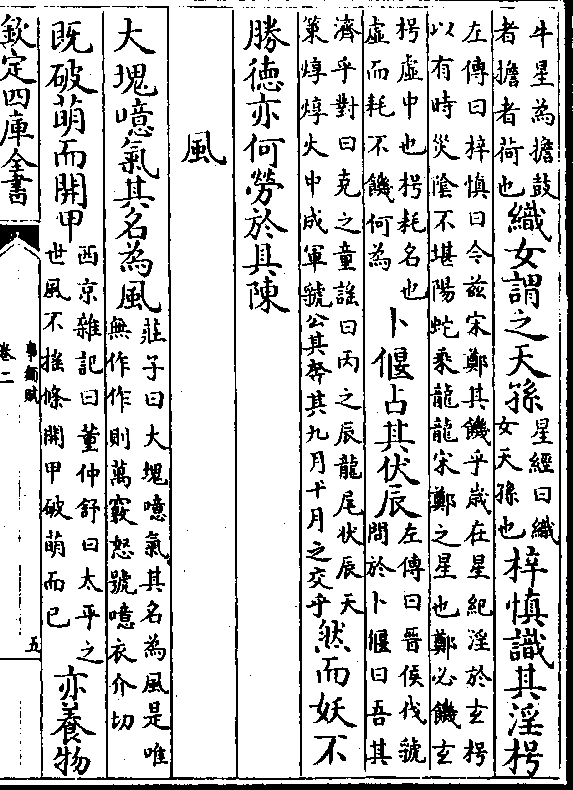 牛星為擔鼓者擔者荷也織女謂之天孫星經曰織女天孫也梓慎識其淫枵
左傳曰梓慎曰今兹宋鄭其饑乎歳在星紀淫於玄枵以有時災隂不堪陽蛇乘龍龍宋鄭之星也鄭必饑玄
枵虚中也枵耗名也虚而耗不饑何為卜偃占其伏辰左傳曰晉侯伐虢問於卜偃曰吾其
濟乎對曰克之童謡曰丙之辰龍尾伏辰天策焞焞火中成軍虢公其奔其九月十月之交乎然而妖不
勝徳亦何勞於具陳
風
大塊噫氣其名為風莊子曰大塊噫氣其名為風是唯無作作則萬竅怒號噫衣介切
既破萌而開甲西京雜記曰董仲舒曰太平之世風不搖條開甲破萌而已亦養物
欽定四庫全書
事類賦
卷二
五